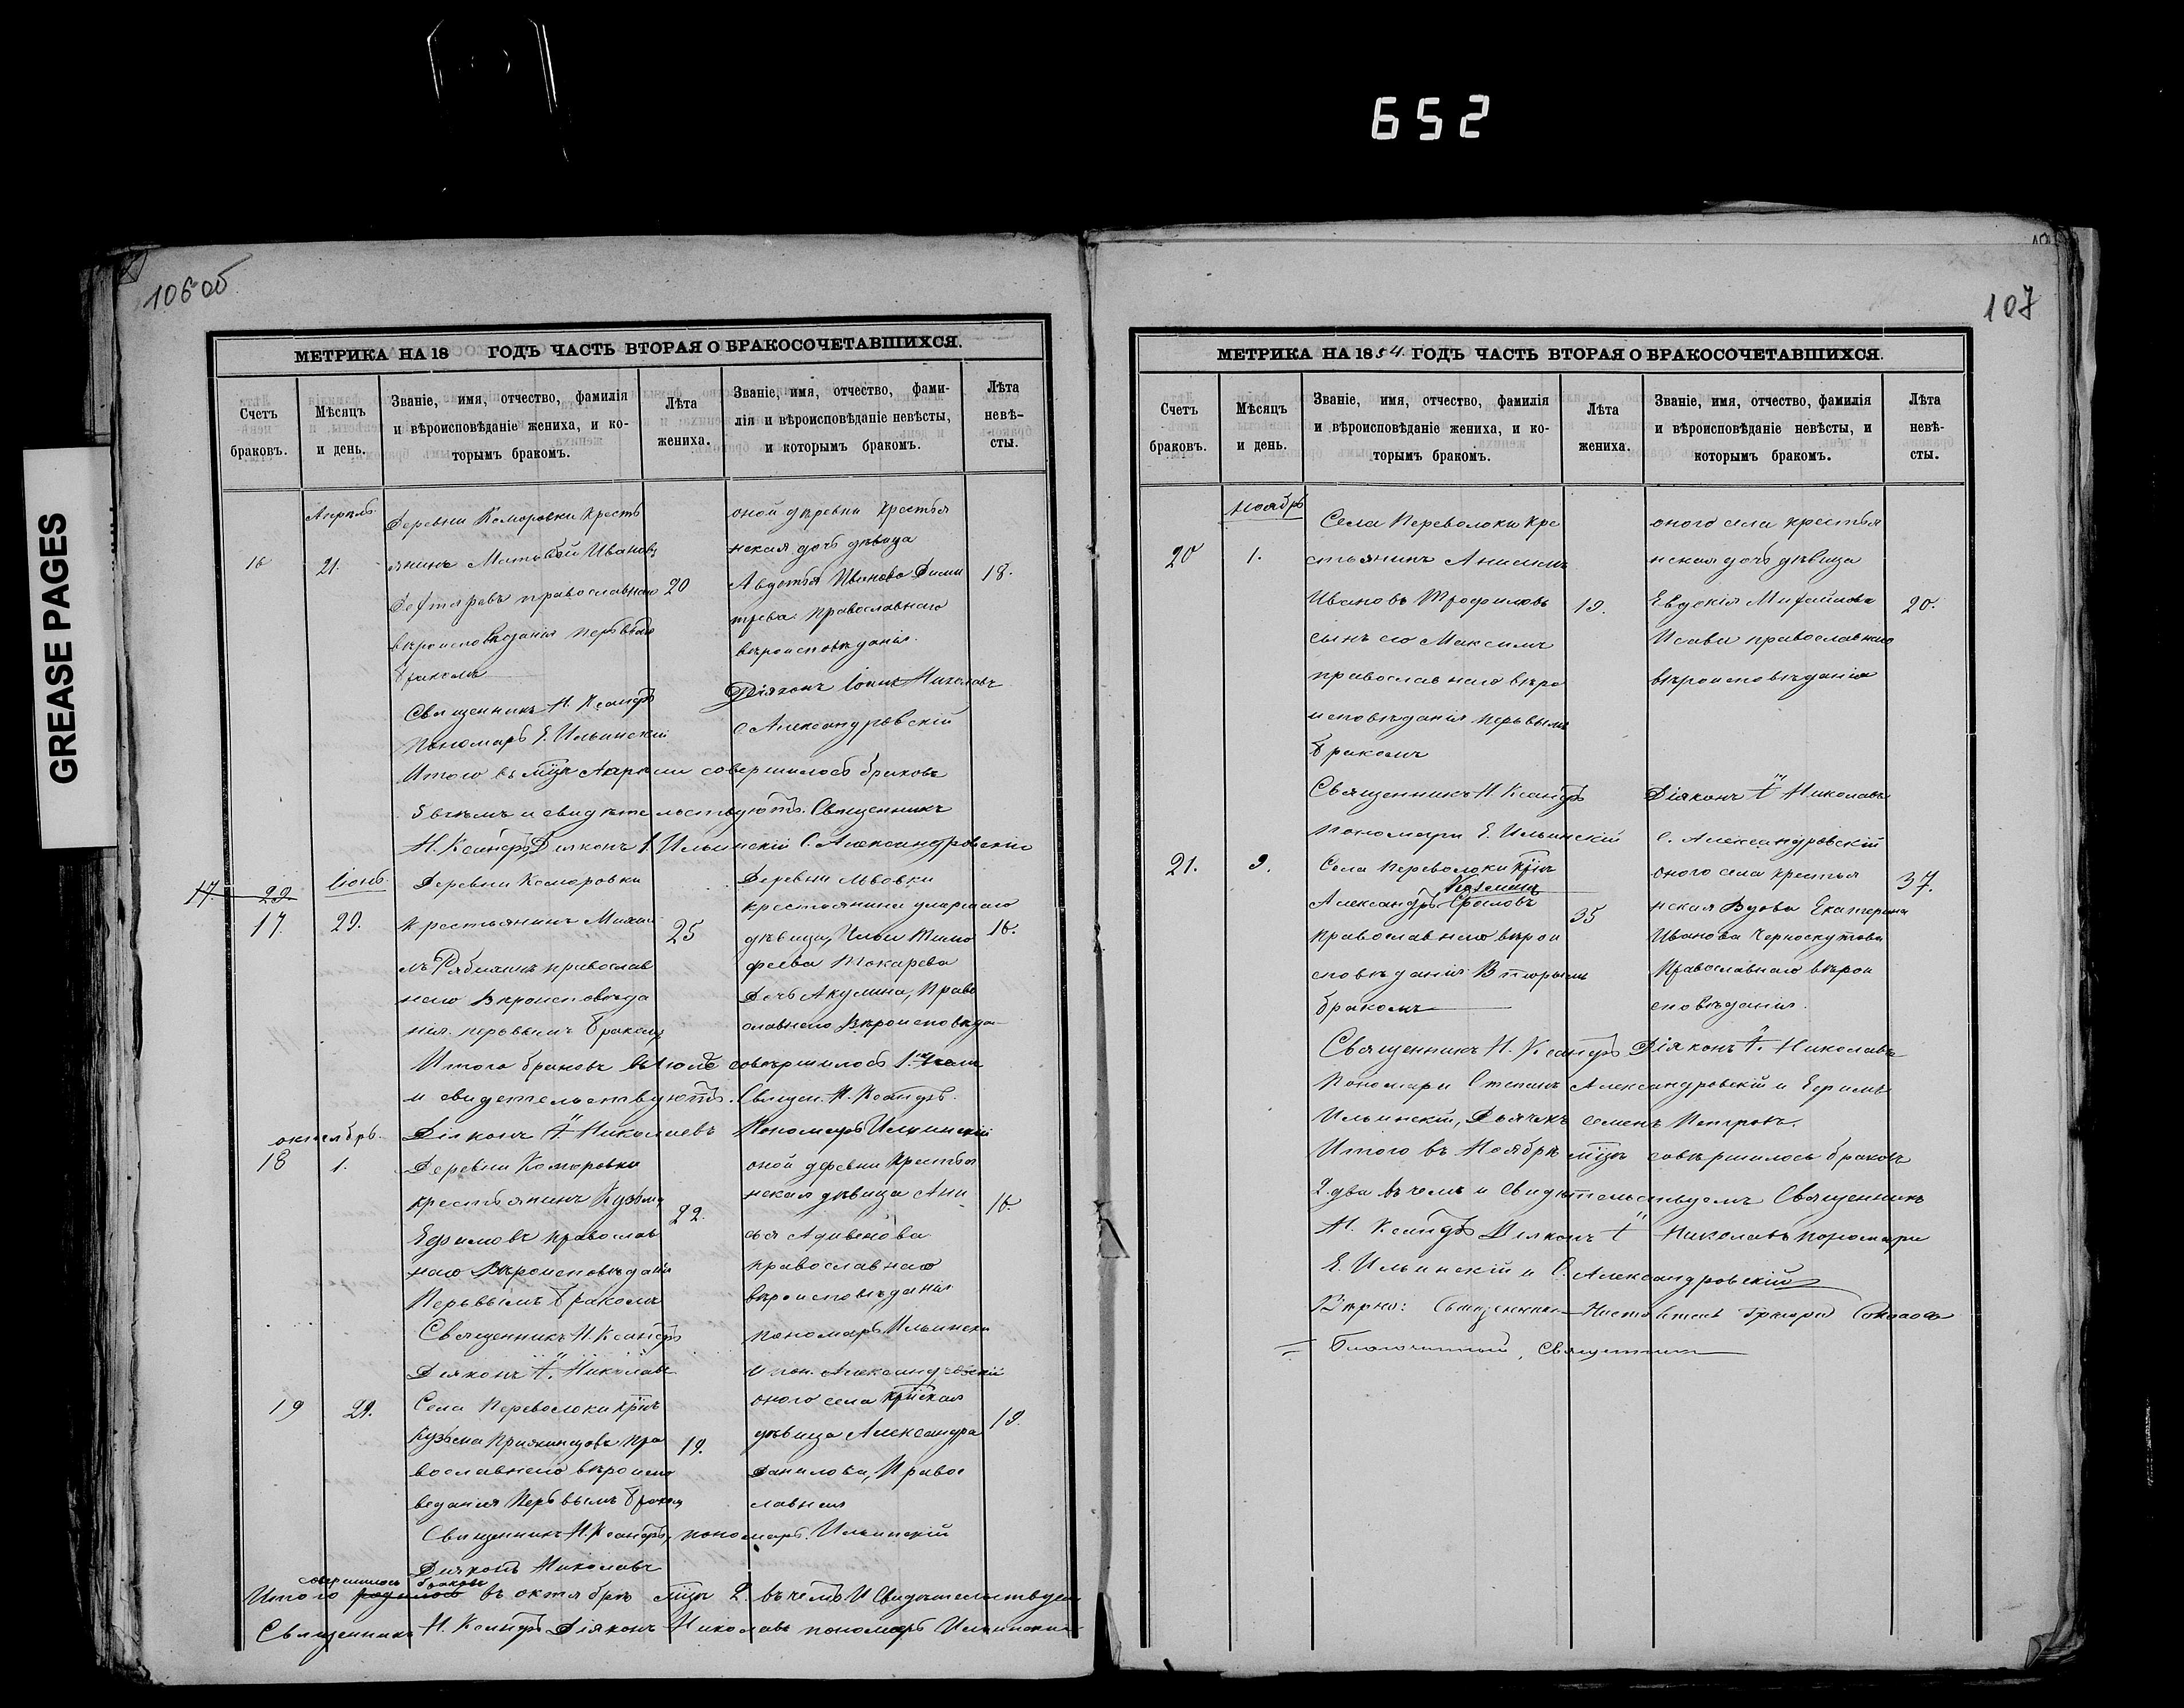 652
GREASE PAGES
106 об
МЕТРИКА НА 18 ГОДЪ ЧАСТЬ ВТОРАЯ О БРАКОСОЧЕТАВШИХСЯ.
Счетъ браковъ.
Мѣсяцъ и день.
Званіе, имя, отчество, фамилія
и вѣроисповѣданіе жениха, и ко-
торымъ бракомъ.
Лѣта жениха.
Званіе, имя, отчество, фами-
лія и вѣроисповѣданіе невѣсты,
и которымъ бракомъ.
Лѣта невѣ-
сты.
Апрѣль
16 21.
Деревни Коморовки кресть
янинъ Иванов
православнаго 20
вѣроисповѣданія первымъ
бракомъ
оной деревни крестья
нская дочь дѣвица
Авдотья Иванова Дими
трева православнаго 18.
вѣроисповѣданія.
Священникъ Н. Ксандръ Діяконъ Николавъ
Пономарь Е. Ильинскій С Александровскій
Итого въ мцѣ Апрѣли совершилось браковъ
5 вчемъ и свидѣтельствуютъ. Священникъ
Н. Ксандръ, Діяконъ Ильинскій С. Александровскій
17. 29.
Іюнь.
17. 29.
Деревни Коморовки
крестьянинъ Михаи
лъ православ
наго вѣроисповѣда
нія. первымъ бракомъ
25
Деревни Львовки
крестьянина умершаго
дѣвица, Ильи Тимо
феева Токарева
Дочь Акулина, Право
славнаго Вѣроисповѣда-
16.
Итого браковъ въ Іюнѣ совѣршилось 1. въ чемъ
и свидетельствуютъ. Священ. Н. Ксандръ.
Діяконъ Николаевъ Пономарь Ильинскій
октябрь.
18 1.
Деревни Коморовки
крестьянинъ Кузьма
Ефимовъ православ
наго Вѣроисповѣданія
Первымъ бракомъ
22.
оной деревни крестья
нская дѣвица Ани
сья
православнаго
вѣроисповѣданія
16.
Священникъ Н. Ксандръ пономарь Ильински
Діяконъ Николавъ и пон. Александровскій
19 29.
Села Переволоки крнъ
Кузьма пра
вославнаго вѣроиспо
веданія Первымъ бракомъ
19.
оного села крнская
дѣвица Александра
Данилова, Право
славная
19.
Священникъ Н. Ксандръ, пономарь. Ильинскій
Діяконъ Николавъ
совершилось браковъ
Итого родилось въ октябрѣ мцѣ 2. въ чемъ И Свидѣтельствуем
Священникъ Н. Ксандръ Діяконъ Николавъ пономарь Ильински
107
МЕТРИКА НА 1854. ГОДЪ ЧАСТЬ ВТОРАЯ О БРАКОСОЧЕТАВШИХСЯ.
Счетъ браковъ.
Мѣсяцъ и день.
Званіе, имя, отчество, фамилія
и вѣроисповѣданіе жениха, и ко-
торымъ бракомъ.
Лѣта жениха.
Званіе, имя, отчество, фамилія
и вѣроисповѣданіе невѣсты, и
которымъ бракомъ.
Лѣта невѣ-
сты.
Ноябрь
20 1.
Села Переволоки кре
стьянинъ
Ивановъ Трофимовъ
сынъ его Максимъ
православнаго вѣро
исповѣданія первымъ
бракомъ
19.
оного села крестья
нская дочь дѣвица
Евдокія Михайлова
Исава православнаго
вѣроисповѣданія
20.
Священникъ Н Ксандръ Діяконъ Николавъ
пономари Е. Ильинскій С. Александровскій
21. 9.
Села Переволоки крнъ
Александръ
православнаго вѣрои
сповѣданія Вторымъ
бракомъ
35
оного села крестья
нская Вдова Екатерина
Иванова Черноскутова
Православнаго вѣрои
сповѣданія.
37.
Священникъ Н. Ксандръ Діяконъ Николавъ
Пономари Степанъ Александровскій и Ефимъ
Ильинскій, Дьячекъ Семенъ Петровъ.
Итого въ Ноябрѣ мцѣ совѣршилось браковъ
2. два въ чемъ и Свидѣтельствуемъ Священникъ
Н. Ксандръ Діяконъ Николавъ пономари
Е. Ильинскій и С. Александровскій
Вѣрно: Священникъ Григорій
Благочинный, Священникъ